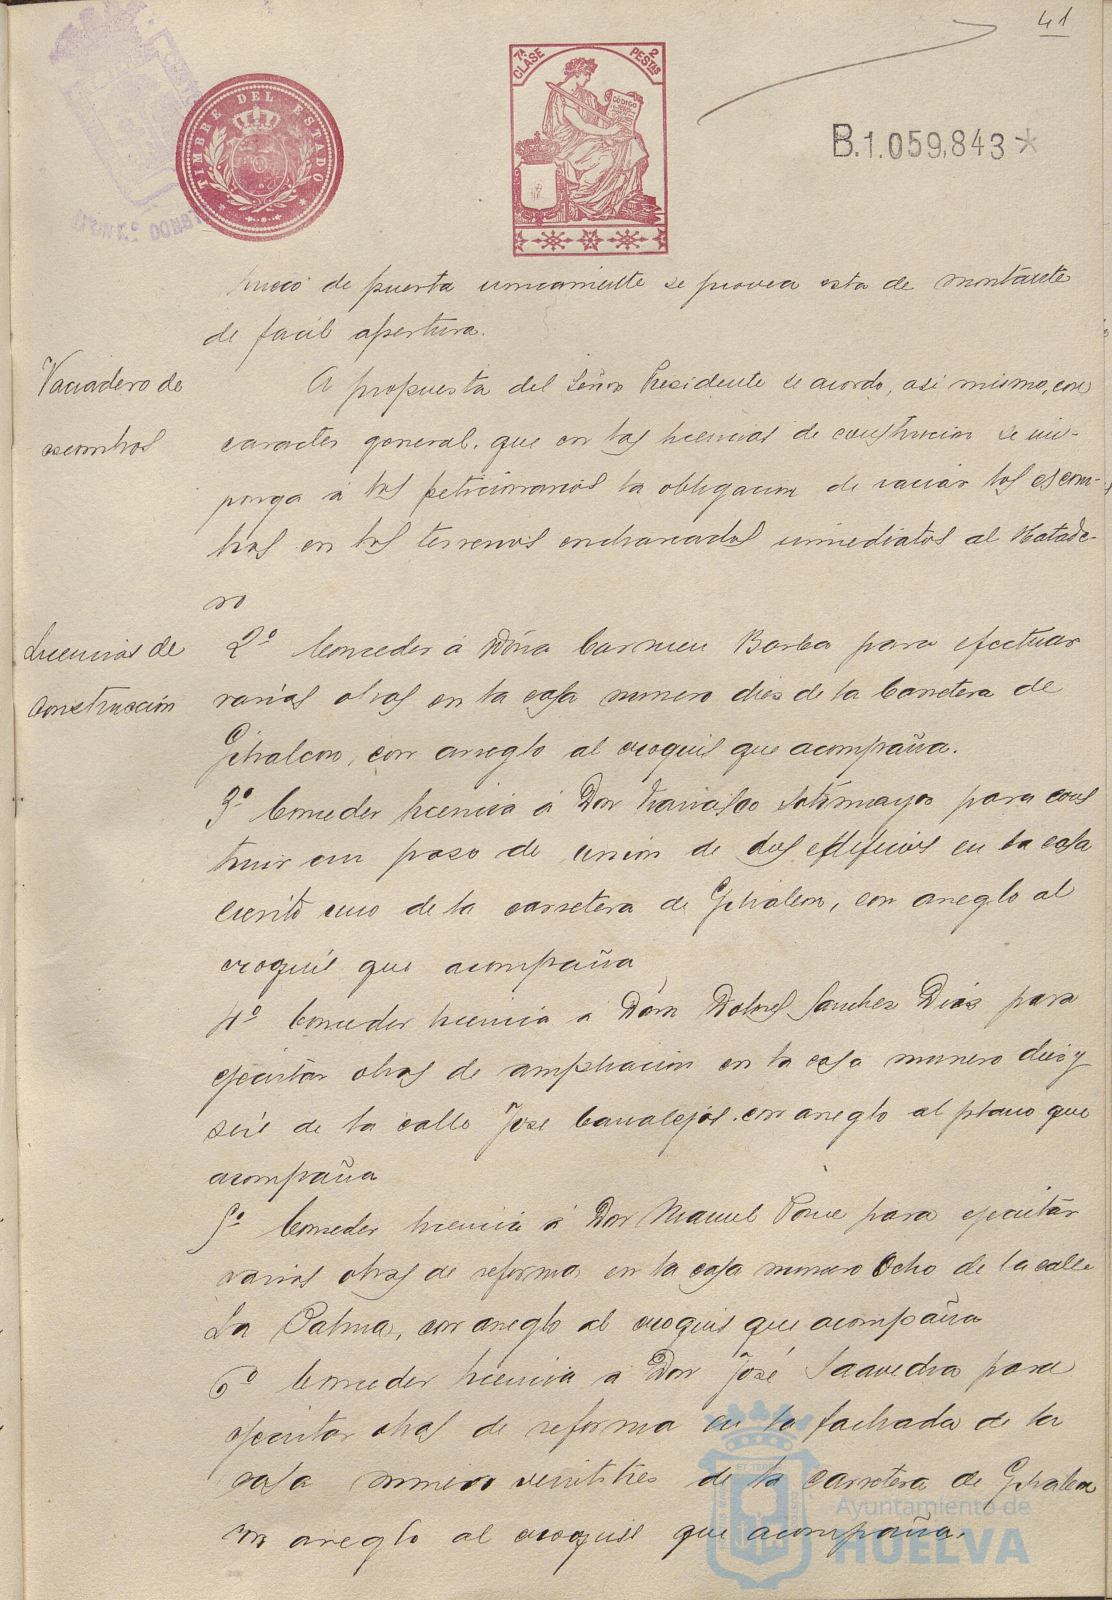 41
7ª CLASE
2 PESTAS
CÓDIGO
TIMBRE DEL ESTADO
B.1.059,843*
hueco de puerta unicamente se provea esta de montante
de facil apertura.
Vaciadero de
escombros
A propuesta del Señor Presidente se acordo, asi mismo, con
caracter general, que en las licencias de construccion se im-
ponga á los peticionarios la obligacion de vaciar los escom-
bros en los terrenos encharcados inmediatos al Matade-
ro
Licencias de
Construcción
2º Conceder á Doña Carmen Barba para efectuar
varias obras en la casa numero dies de la Carretera de
Gibraleon, con arreglo al croquis que acompaña.
3º Conceder licencia á Don Francisco Sotomayor para cons
truir un paso de union de dos edificios en la casa
ciento uno de la carretera de Gibraleon, con arreglo al
croquis que acompaña
4º Conceder licencia a Doña Dolores Sanches Dias para
ejecutar obras de ampliacion en la casa numero dies y
seis de la calle Jose Canalejas, con arreglo al plano que
acompaña
5º Conceder licencia á Don Manuel Ponce para ejecutar
varias obras de reforma en la casa numero Ocho de la calle
La Palma, con arreglo al croquis que acompaña
6º Conceder licencia a Don José Saavedra para
ejecutar obras de reforma en la fachada de la
casa numero veintitres de la carretera de Gibraleon
con arreglo al croquis que acompaña.
Ayuntamiento de
HUELVA